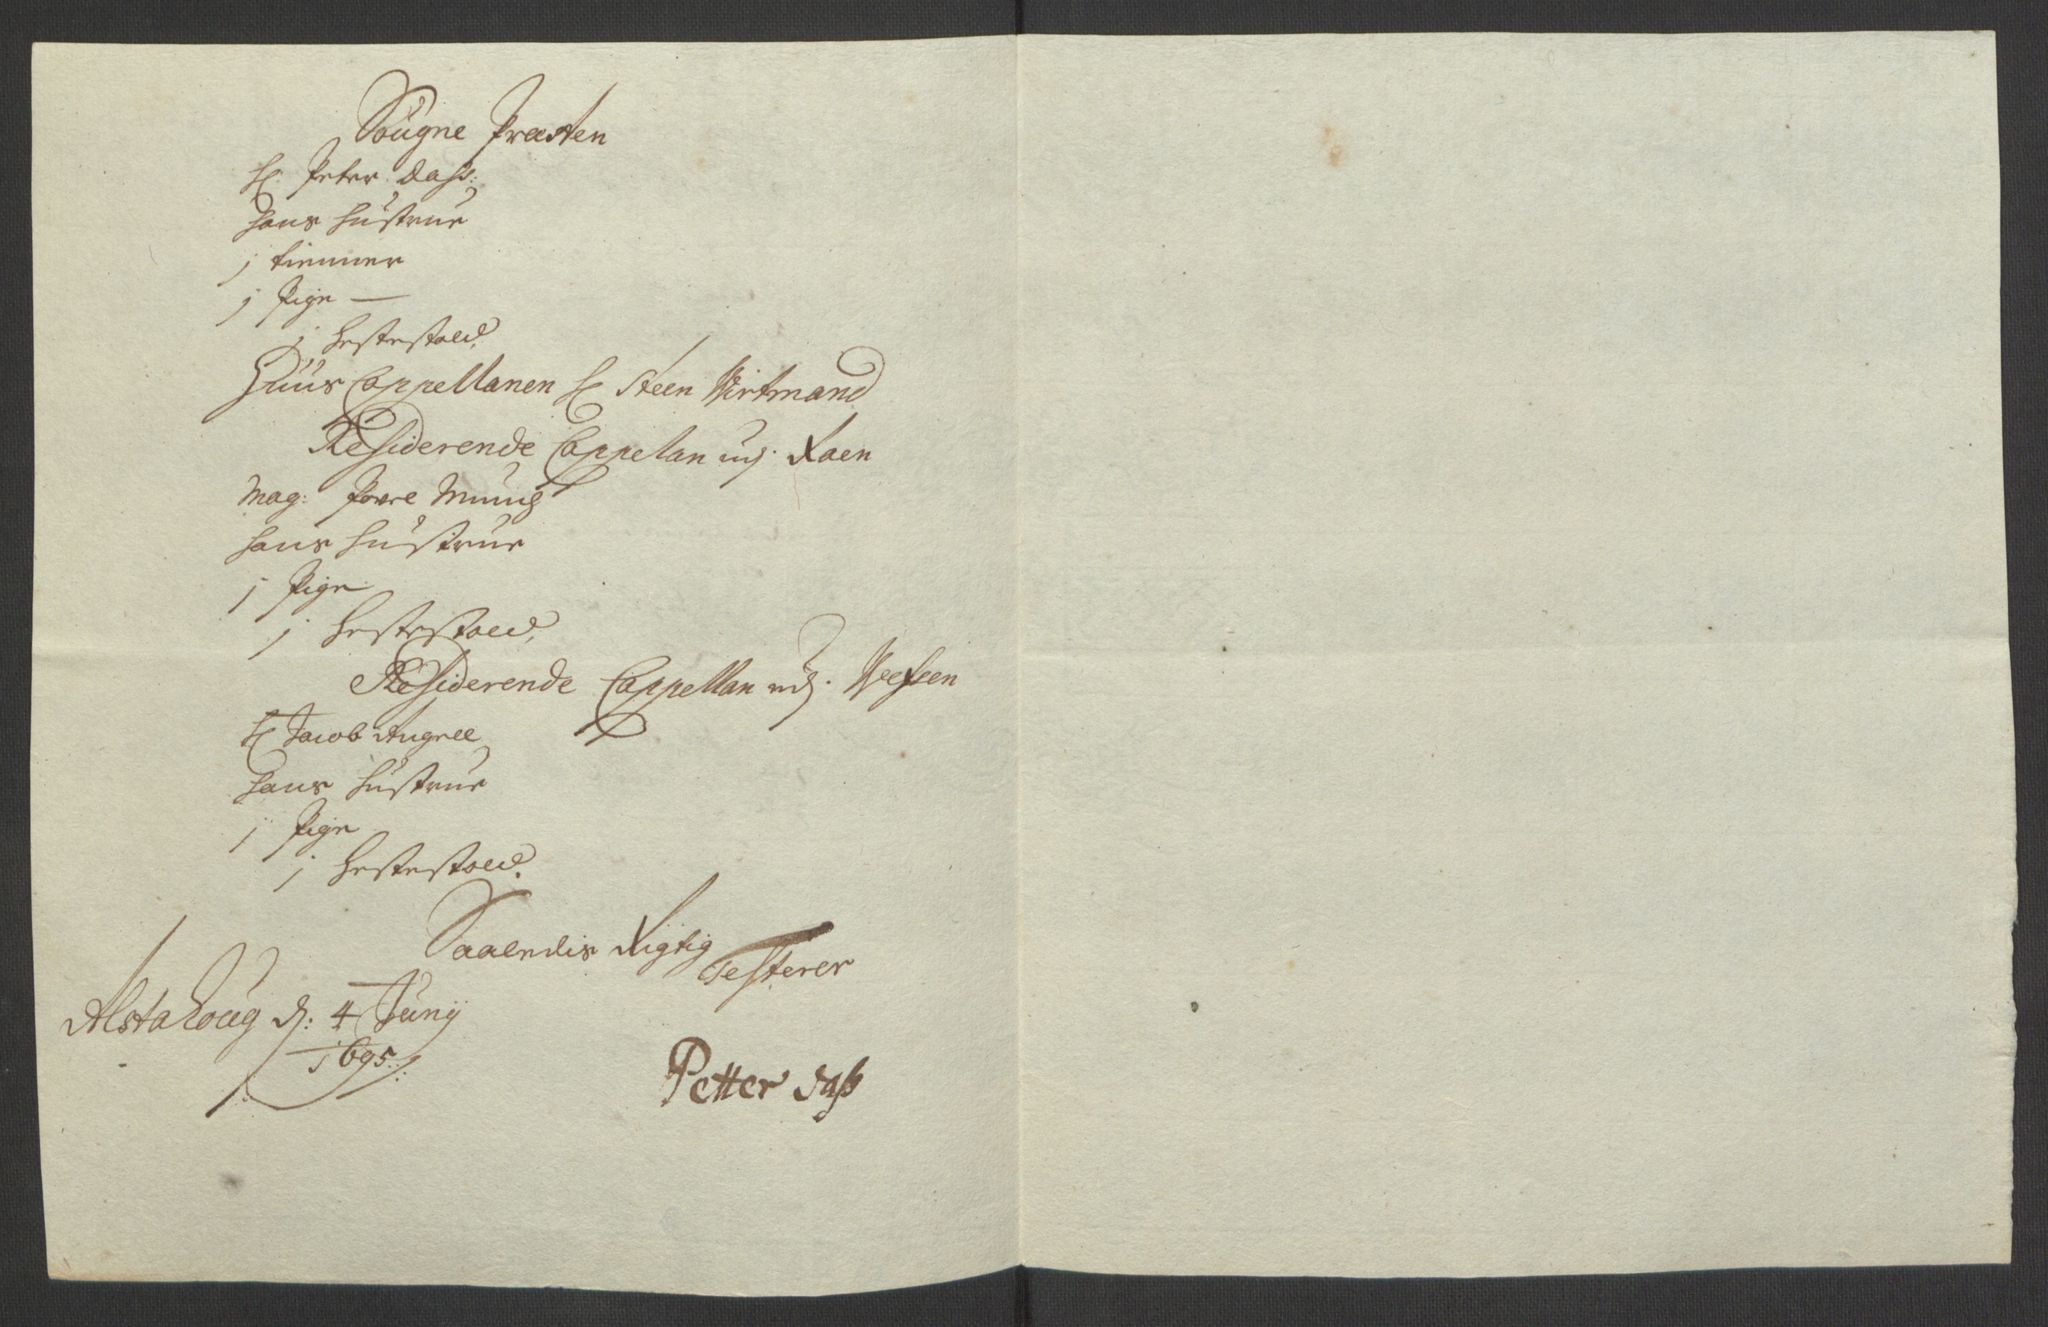 Sougne Præsten
H. Peter Dass:
hans hustrue
j tienner
j Pige —
j hestestald,
Huus Cappellanen H Steen Wirtmand
Residerende Cappelan udj. Raen
Mag: Povel Munch
hans hustrue
j Pige
j hestestald,
Residerende Cappellan udj. Wefsen
H Jacob Angell
hans hustrue
j Pige
j hestestald.
Saaledis Rigtig Testerer
Alstahoug d: 4 Junij
1695:
Petter Dass